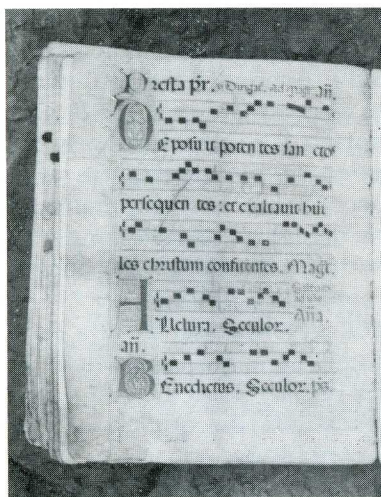 Presta pr̄. ad mag. añ.
Deposuit potentes sanctos
persequentes : et exaltauit humi
les christum confitentes. Mag̃.
Alleluia. Seculor. Aña.
añ.
Benedictus. Seculor. ps.